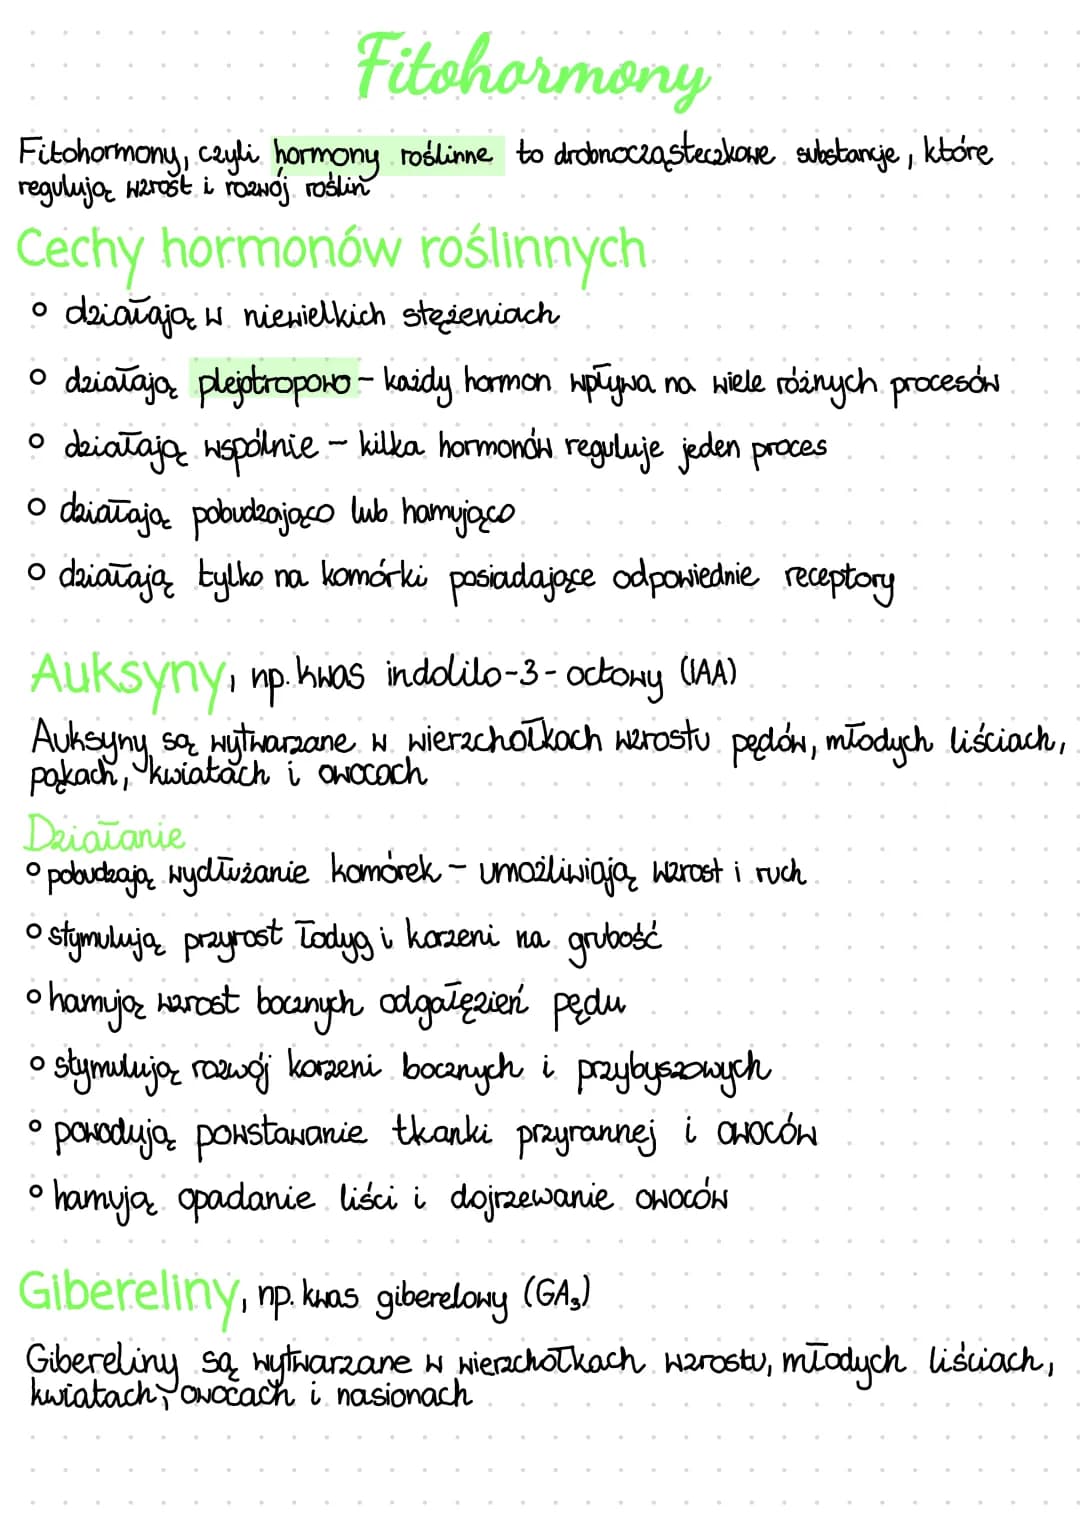 Fitohormony
Fitohormony, czyli hormony roślinne to drobnocząsteczkowe substancje, które
regulują wzrost i rozwój roślin
Cechy hormonów roślinnych
o działają w niewielkich stężeniach
o działają plejotropowo - każdy hormon wpływa na wiele różnych procesów
o działają wspólnie - kilka hormonów reguluje jeden proces
o działają pobudzająco lub hamująco
o działają tylko na komórki posiadające odpowiednie receptory
Auksyny, np. kwas indolilo-3-octowy (IAA)
Auksyny są wytwarzane w wierzchołkach wzrostu pędów, młodych liściach,
pąkach, kwiatach i owocach
Działanie
o pobudzają wydłużanie komórek - umożliwiają wzrost i ruch
o stymulują przyrost łodyg i korzeni na grubość
o hamują wzrost bocznych odgałęzień pędu
o stymulują rozwój korzeni bocznych i przybyszowych
o powodują powstawanie tkanki przyrannej i owoców
o hamują opadanie liści i dojrzewanie owoców
Gibereliny, np. kwas giberelowy (GA₃)
Gibereliny są wytwarzane w wierzchołkach wzrostu, młodych liściach,
kwiatach, owocach i nasionach